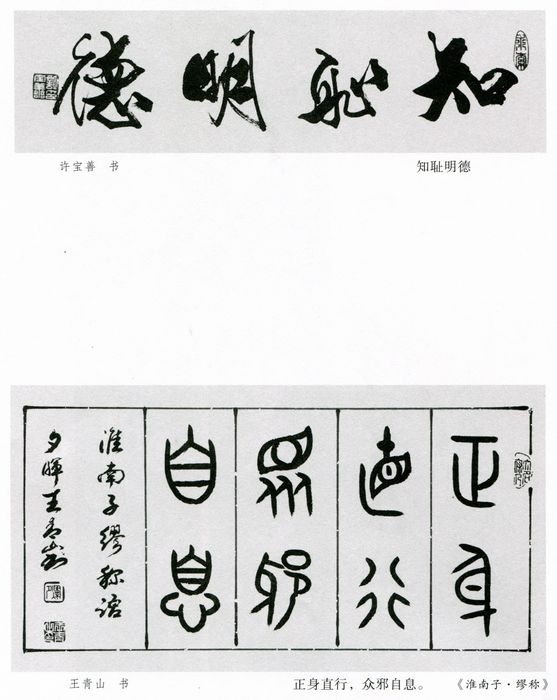 知耻明德
许宝善 书
知耻明德
正身
直行
众邪
自息
淮南子缪称语
夕晖王青山书
王青山 书
正身直行，众邪自息。
《淮南子·缪称》